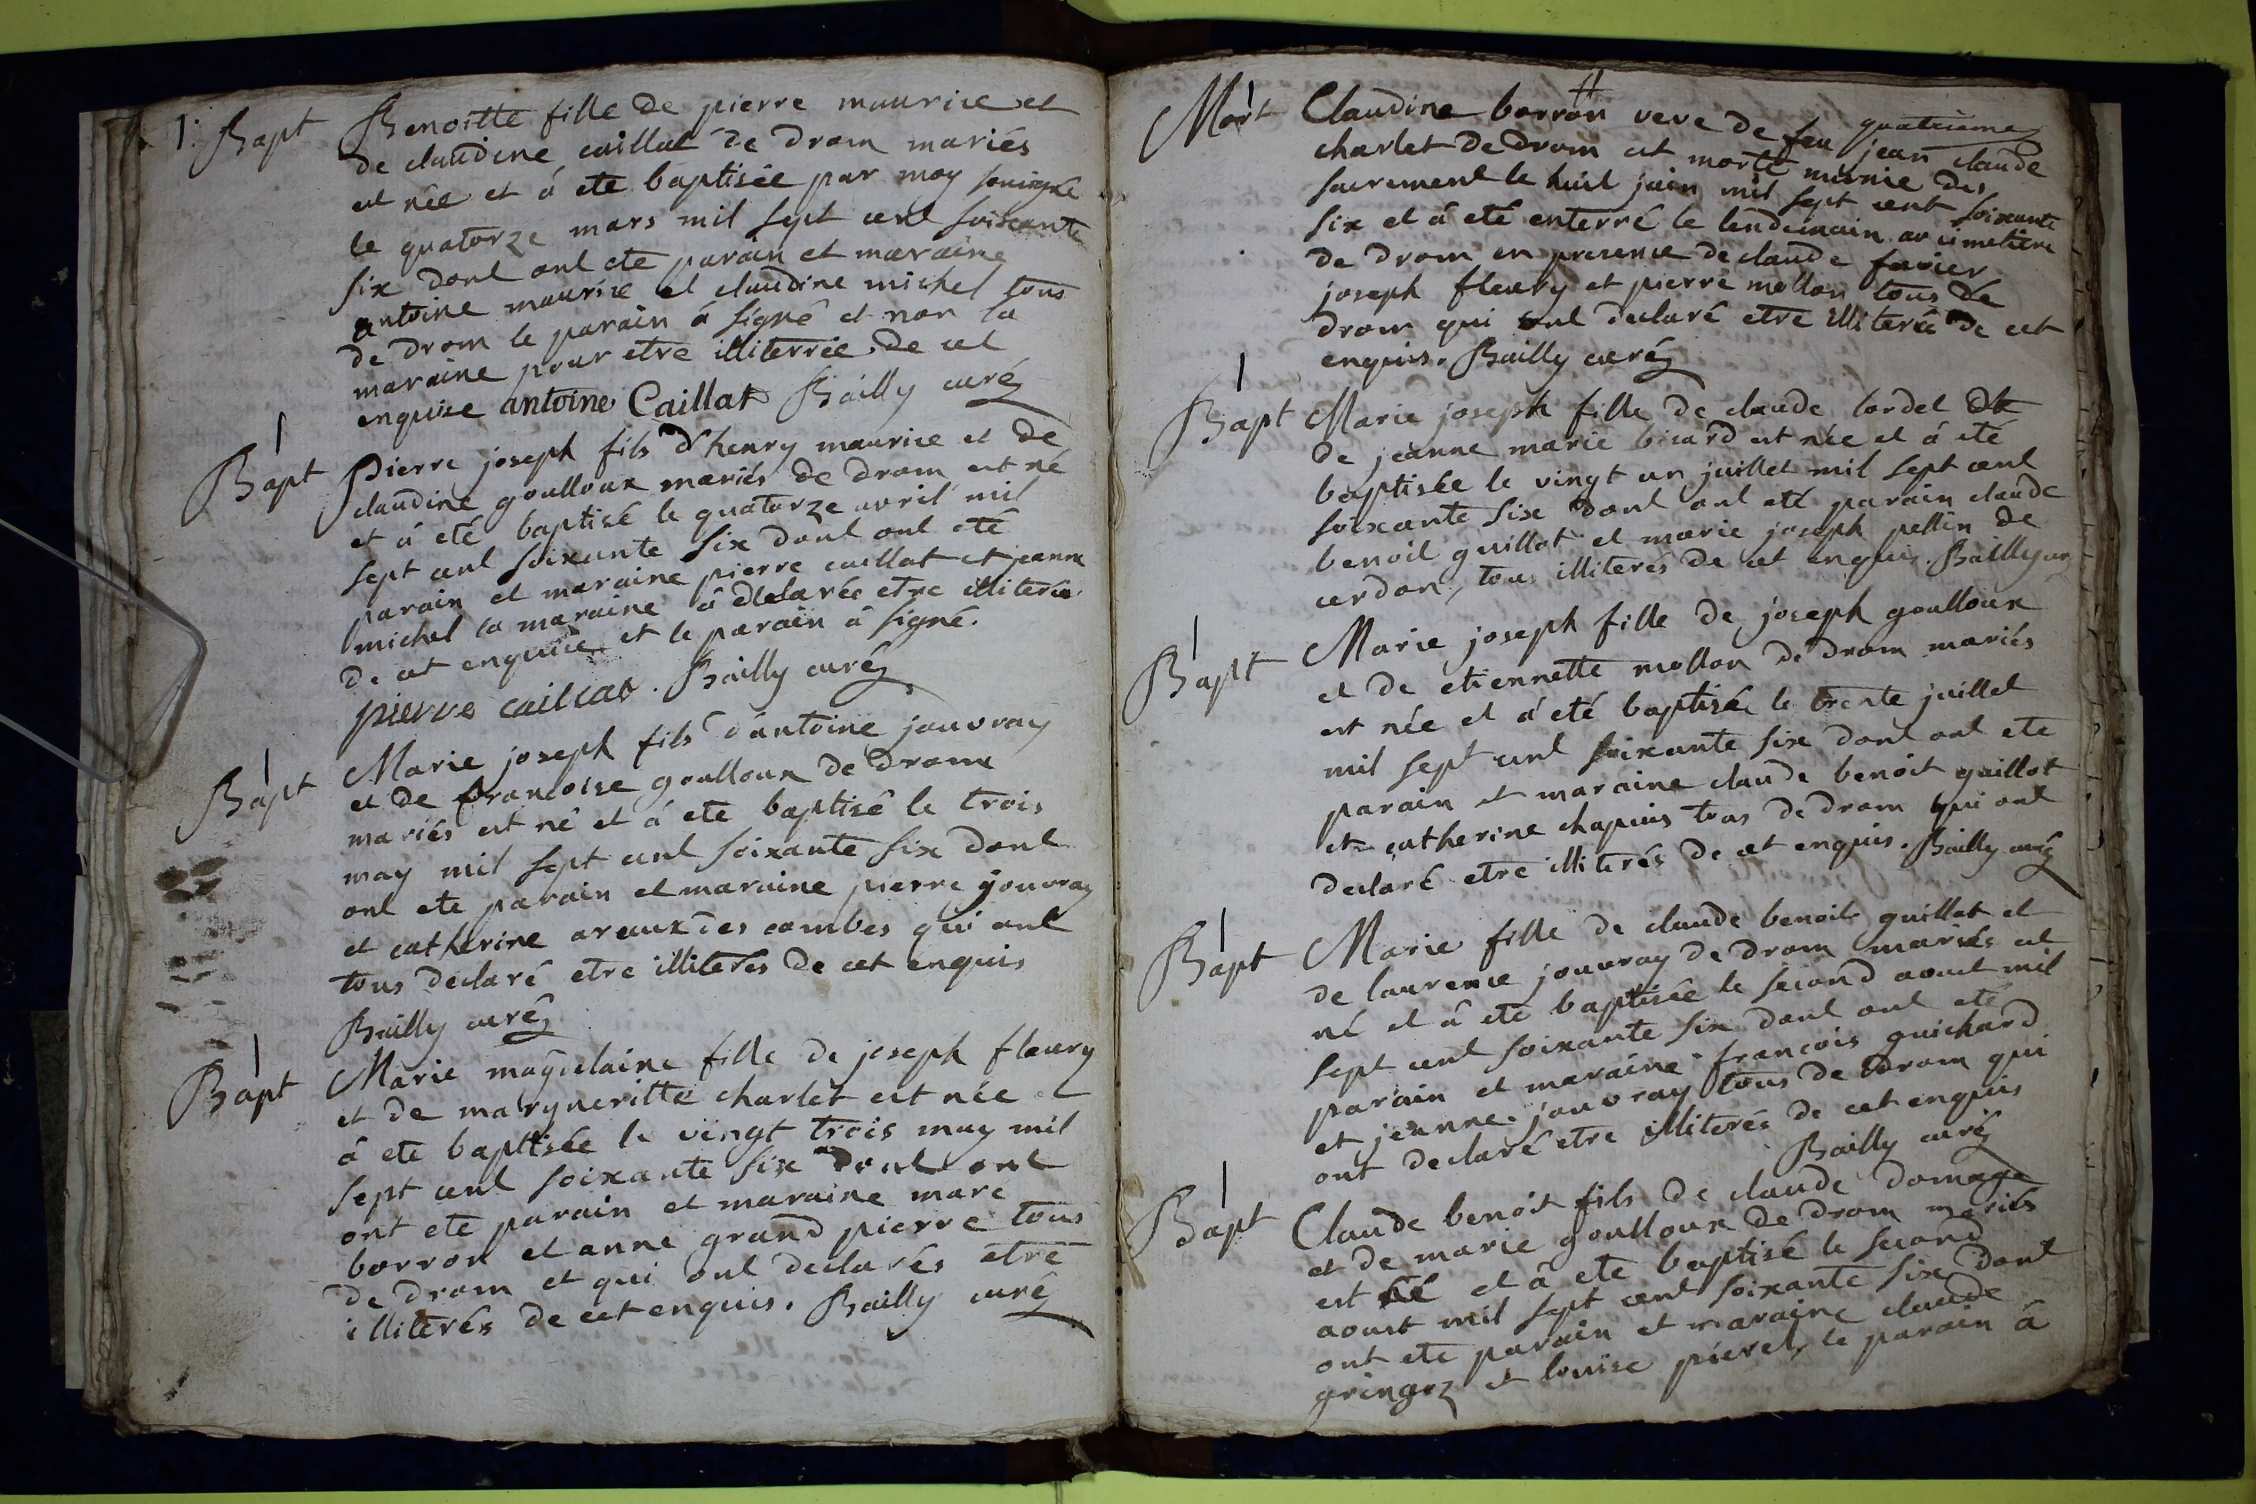 1. Bapt Benoitte fille de pierre maurice et
de claudine caillat de drom mariés
est née et á ete baptisée par moy sousigné
le quatorze mars mil sept cent soixante
six dont ont ete parain et maraine
antoine maurice et claudine michel tous
de drom le parain á signé et non la
maraine pour etre illiterrée de cet
enquise antoine Caillat Bailly curé
Bapt Pierre joseph fils d'henry maurice et de
claudine goulloux mariés de drom est né
et á eté baptisé le quatorze avril mil
sept cent soixante six dont ont eté
parain et maraine pierre caillat et jeanne
michel la maraine á declarée etre illiterée
de cet enquise et le parain á signé.
pierre caillat. Bailly curé
Bapt Marie joseph fils d'antoine jouvray
et de francoise goulloux de drom
mariés est né et á ete baptisé le trois
may mil sept cent soixante six dont
ont ete parain et maraine pierre jouvray
et catherine areux des combes qui ont
tous declaré etre illiterés de cet enquis
Bailly curé
Bapt Marie magdelaine fille de joseph fleury
et de marguerite charlet est née et
á ete baptisée le vingt trois may mil
sept cent soixante six dont ont
ont ete parain et maraine marc
borron et anne grand pierre tous
de drom et qui ont declarés etre
illiterés de cet enquis. Bailly curé
quatrieme
Mort Claudine borron veve de feu jean claude
charlet de drom est morte munie des
sacrement le huit juin mil sept cent soixante
six et á eté enterré le lendemain au cimetiere
de drom en presence de claude favier
joseph fleury et pierre mollon tous de
drom qui ont declaré etre illiteré de cet
enquis. Bailly curé
Bapt Marie joseph fille de claude tordet et
de jeanne marie bicard est née et á eté
baptisée le vingt un juillet mil sept cent
soixante six dont ont eté parain claude
benoit guillot et marie joseph pellin de
cerdon, tous illiterés de cet enquis. Bailly cur
Bapt Marie joseph fille de joseph goulloux
et de etiennette mollon de drom mariés
est née et á eté baptisée le trente juillet
mil sept cent soixante six dont ont ete
parain et maraine claude benoit guillot
et catherine chapuis tous de drom qui ont
declaré etre illiterés de cet enquis. Bailly curé
Bapt Marie fille de claude benoit guillot et
de laurence jouvray de drom mariés est
né et á ete baptisée le second aoust mil
sept cent soixante six dont ont eté
parain et maraine francois guichard
et jeanne jouvray tous de drom qui
ont declaré etre illiterés de cet enquis
Bailly curé
Bapt Claude benoit fils de claude domage
et de marie goulloux de drom mariés
est né et á ete baptisé le second
aoust mil sept cent soixante six dont
ont ete parain et maraine claude
gringoz et louise pieret, le parain á